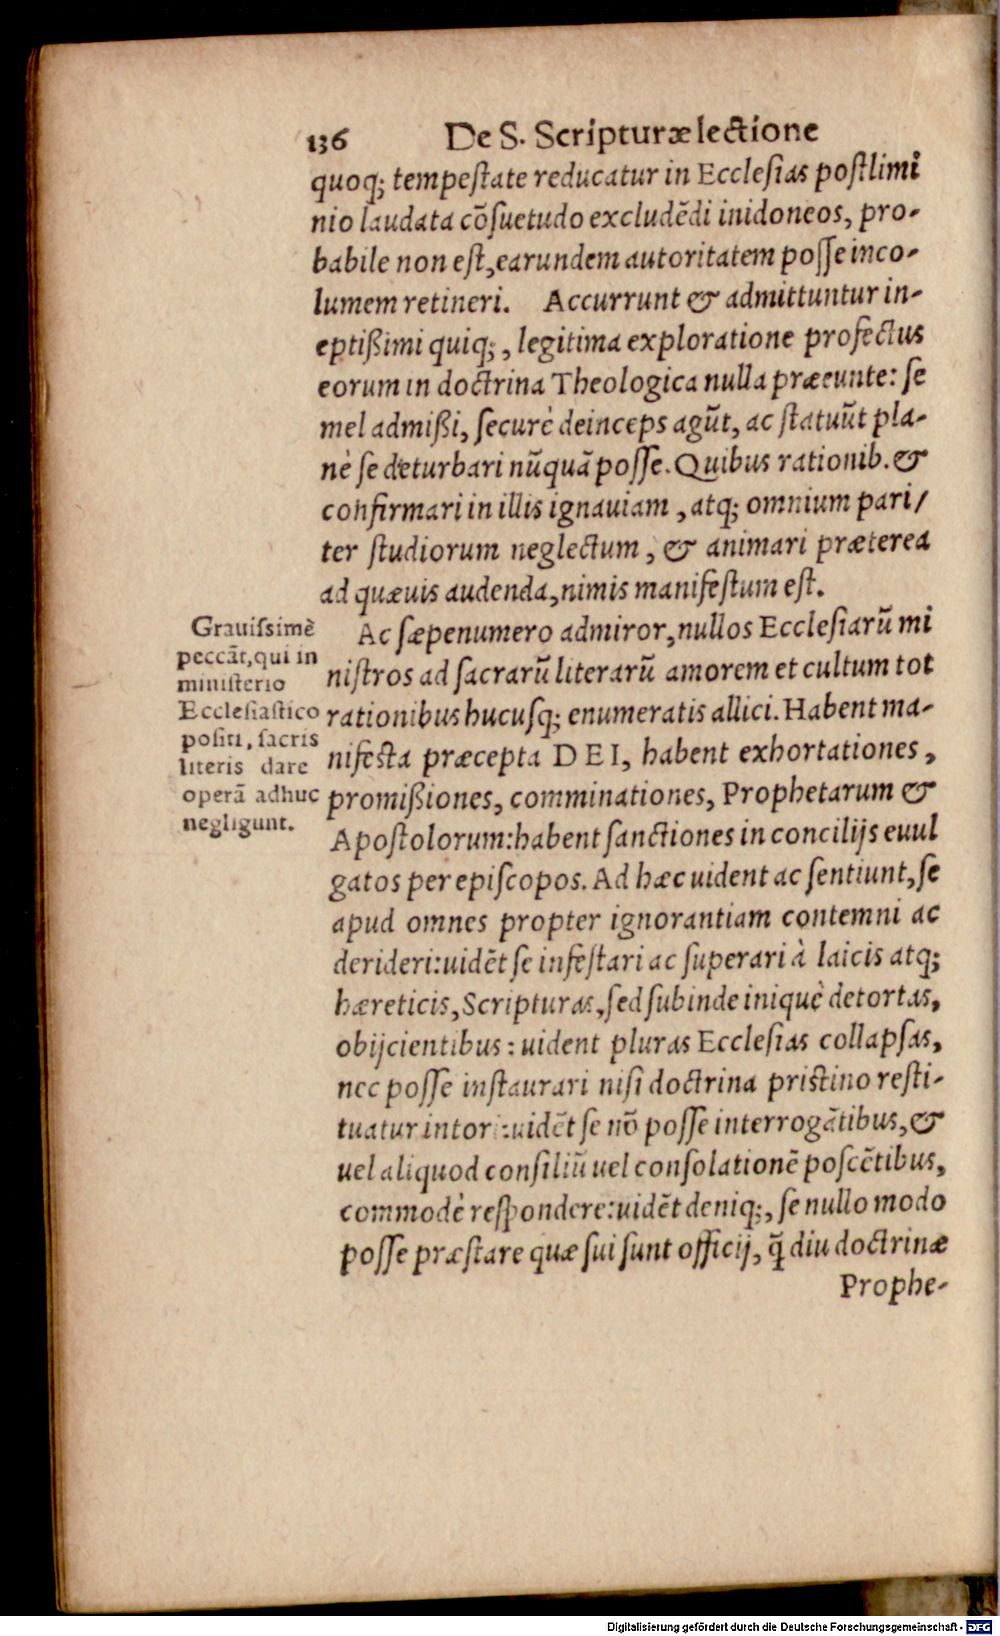 136 De S. Scripturæ lectione
quoq; tempeſtate reducatur in Eccleſias poſtlimi
nio laudata cõſuetudo excludẽdi inidoneos, pro-
babile non eſt, earundem autoritatem poſſe inco-
lumem retineri. Accurrunt & admittuntur in-
eptißimi quiq;, legitima exploratione profectus
eorum in doctrina Theologica nulla præeunte: ſe
mel admißi, ſecurè deinceps agũt, ac ſtatuũt pla-
nè ſe deturbari nũquã poſſe. Quibus rationib. &
confirmari in illis ignauiam, atq; omnium pari/
ter ſtudiorum neglectum, & animari præterea
ad quæuis audenda, nimis manifeſtum eſt.
Ac ſæpenumero admiror, nullos Eccleſiarũ mi
niſtros ad ſacrarũ literarũ amorem et cultum tot
rationibus hucuſq; enumeratis allici. Habent ma-
nifeſta præcepta DEI, habent exhortationes,
promißiones, comminationes, Prophetarum &
Apoſtolorum: habent ſanctiones in concilijs euul
gatos per epiſcopos. Ad hæc uident ac ſentiunt, ſe
apud omnes propter ignorantiam contemni ac
derideri: uidẽt ſe infeſtari ac ſuperari à laicis atq;
hæreticis, Scripturas, ſed ſubinde iniquè detortas,
obijcientibus: uident pluras Eccleſias collapſas,
nec poſſe inſtaurari niſi doctrina priſtino reſti-
tuatur intori: uidẽt ſe nõ poſſe interrogãtibus, &
uel aliquod conſiliũ uel conſolationẽ poſcẽtibus,
commodè reſpondere: uidẽt deniq;, ſe nullo modo
poſſe præſtare quæ ſui ſunt officij, q̃ diu doctrinæ
Prophe-
Grauiſsimè
peccãt, qui in
miniſterio
Eccleſiaſtico
poſiti, ſacris
literis dare
operã adhuc
negligunt.
Digitalisierung gefördert durch die Deutsche Forschungsgemeinschaft - DFG